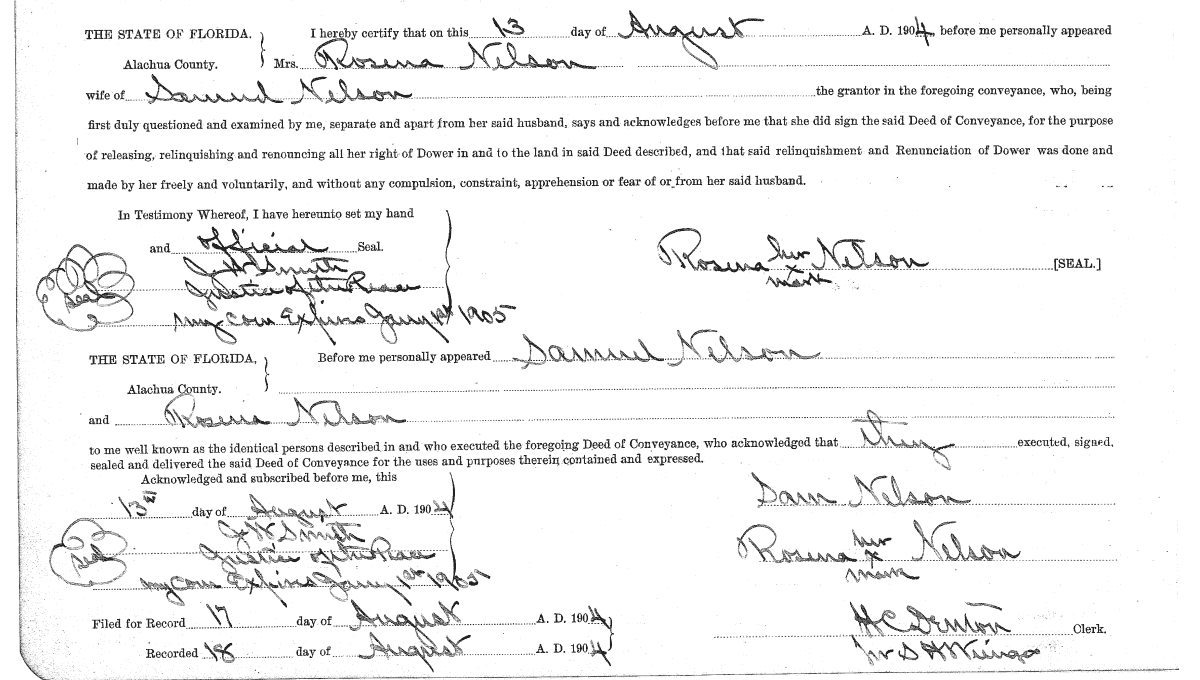 THE STATE OF FLORIDA. I hereby certify that on this 13 day of August A. D. 1904, before me personally appeared
Alachua County. Mrs. Rosena Nelson
wife of Samuel Nelson the grantor in the foregoing conveyance, who, being
first duly questioned and examined by me, separate and apart from her said husband, says and acknowledges before me that she did sign the said Deed of Conveyance, for the purpose
of releasing, relinquishing and renouncing all her right of Dower in and to the land in said Deed described, and that said relinquishment and Renunciation of Dower was done and
made by her freely and voluntarily, and without any compulsion, constraint, apprehension or fear of or from her said husband.
In Testimony Whereof, I have hereunto set my hand
and official Seal.
J W Smith
Justice of the Peace
Seal
my Com Expires Jany 1st 1905
Rosena her Nelson [SEAL.]
x
mark
THE STATE OF FLORIDA, Before me personally appeared Samuel Nelson
Alachua County.
and Rosena Nelson
to me well known as the identical persons described in and who executed the foregoing Deed of Conveyance, who acknowledged that they executed, signed,
sealed and delivered the said Deed of Conveyance for the uses and purposes therein contained and expressed.
Acknowledged and subscribed before me, this
13th day of August A. D. 1904
J W Smith
Justice of the Peace
Seal
my Com Expires Jany 1st 1905
Sam Nelson
Rosena her Nelson
x
mark
Filed for Record 17 day of August A. D. 1904
Recorded 18 day of August A. D. 1904
H C Denton Clerk.